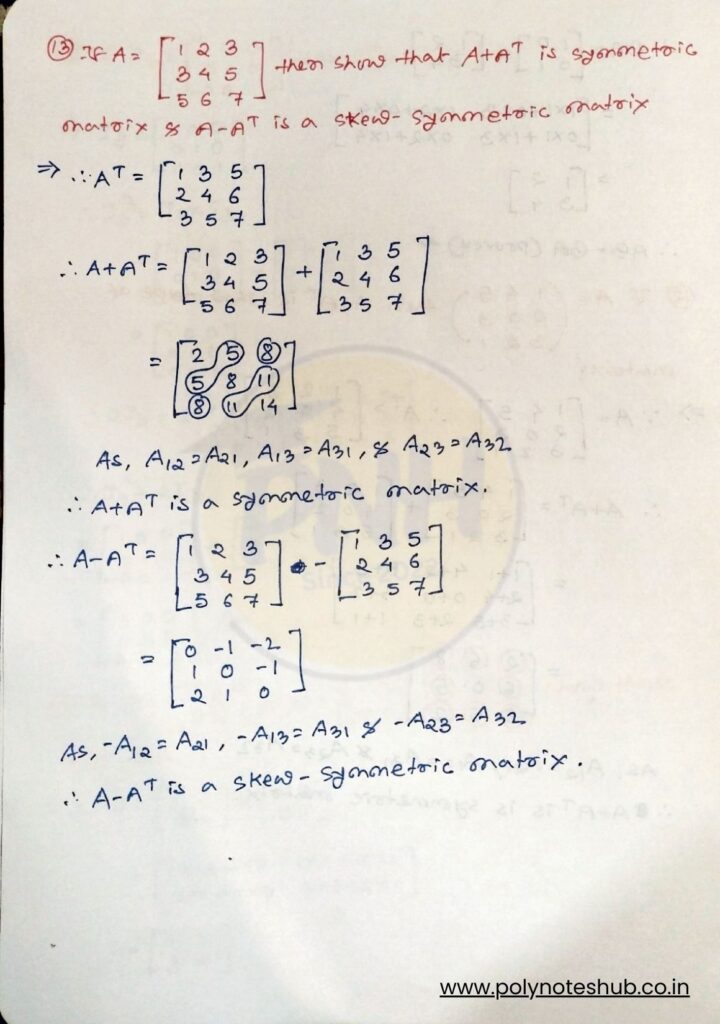 ⑬ If A = [1 2 3
3 4 5
5 6 7] then show that A+Aᵀ is symmetric
matrix & A-Aᵀ is a skew-symmetric matrix
⇒ ∴ Aᵀ = [1 3 5
2 4 6
3 5 7]
∴ A+Aᵀ = [1 2 3
3 4 5
5 6 7] + [1 3 5
2 4 6
3 5 7]
= [2 5 8
5 8 11
8 11 14]
As, A₁₂=A₂₁, A₁₃=A₃₁, & A₂₃=A₃₂
∴ A+Aᵀ is a symmetric matrix.
∴ A-Aᵀ = [1 2 3
3 4 5
5 6 7] - [1 3 5
2 4 6
3 5 7]
= [0 -1 -2
1 0 -1
2 1 0]
As, -A₁₂ = A₂₁, -A₁₃ = A₃₁ & -A₂₃ = A₃₂
∴ A-Aᵀ is a skew-symmetric matrix.
PNH
www.polynoteshub.co.in